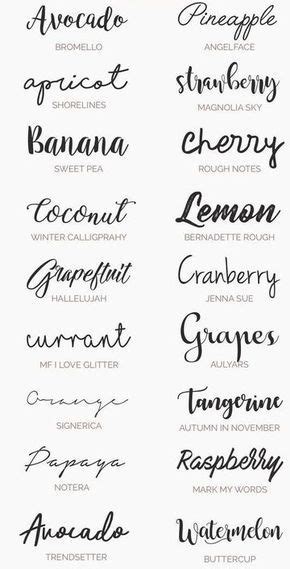 Avocado
BROMELLO
Pineapple
ANGELFACE
apricot
SHORELINES
strawberry
MAGNOLIA SKY
Banana
SWEET PEA
Cherry
ROUGH NOTES
Coconut
WINTER CALLIGPRAHY
Lemon
BERNADETTE ROUGH
Grapefruit
HALLELUJAH
Cranberry
JENNA SUE
currant
MF I LOVE GLITTER
Grapes
AULYARS
Orange
SIGNERICA
Tangerine
AUTUMN IN NOVEMBER
Papaya
NOTERA
Raspberry
MARK MY WORDS
Avocado
TRENDSETTER
Watermelon
BUTTERCUP